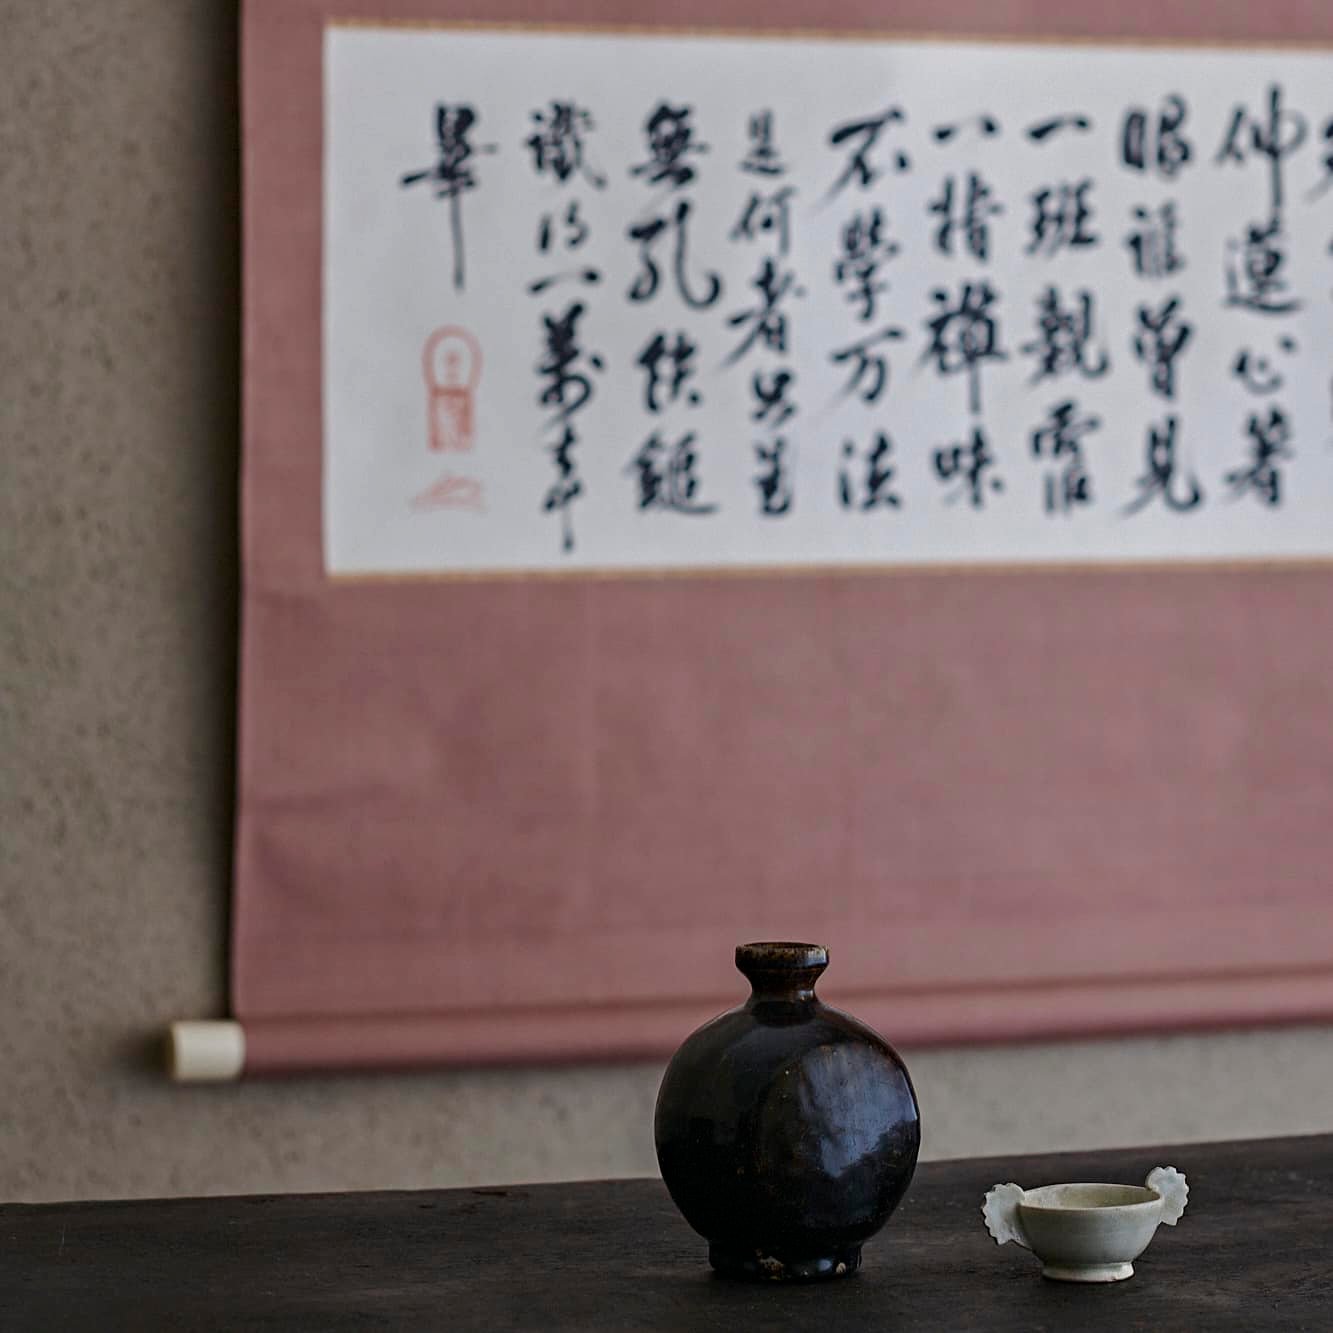 仲蓮心著
眼誰曾見
一班親霑
一指禪味
不學万法
是何者只羞
無孔鉄鎚
識得一萬千
畢